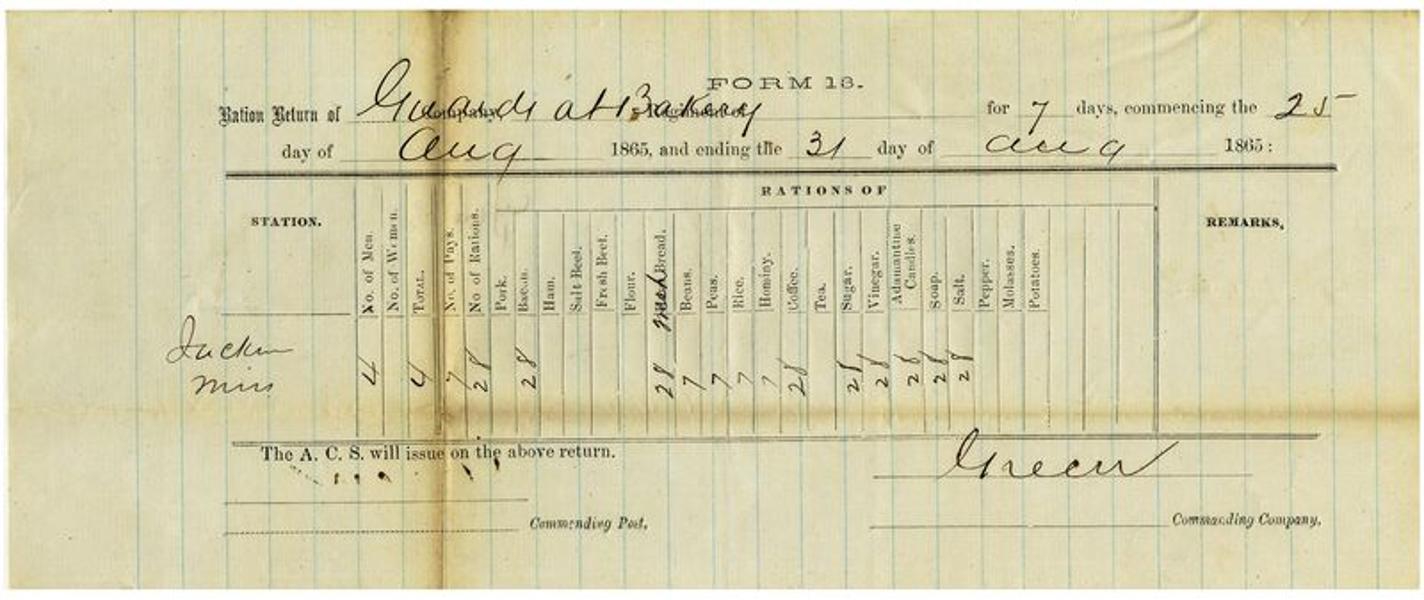 FORM 13.
Ration Return of Guards at Bakery Company, Regiment of for 7 days, commencing the 25
day of Aug 1865, and ending the 31 day of Aug 1865:
RATIONS OF
STATION.
No. of Men.
No. of Women.
TOTAL.
No. of Days.
No of Rations.
Pork.
Bacon.
Ham.
Salt Beef.
Fresh Beef.
Flour.
Bread.
Beans.
Peas.
Rice.
Hominy.
Coffee.
Tea.
Sugar.
Vinegar.
Adamantine Candles.
Soap.
Salt.
Pepper.
Molasses.
Potatoes.
REMARKS,
Jackson
Miss
4 4 7 28 28 28 7 7 7 7 28 28 28 28 28 28
The A. C. S. will issue on the above return.
Green
Commending Post,
Commanding Company,